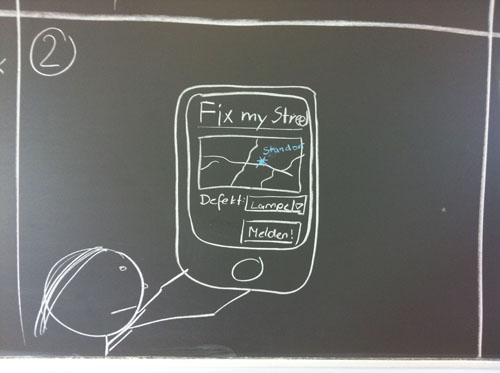 2
Fix my Street
Standort
Defekt: Lampe
Melden!